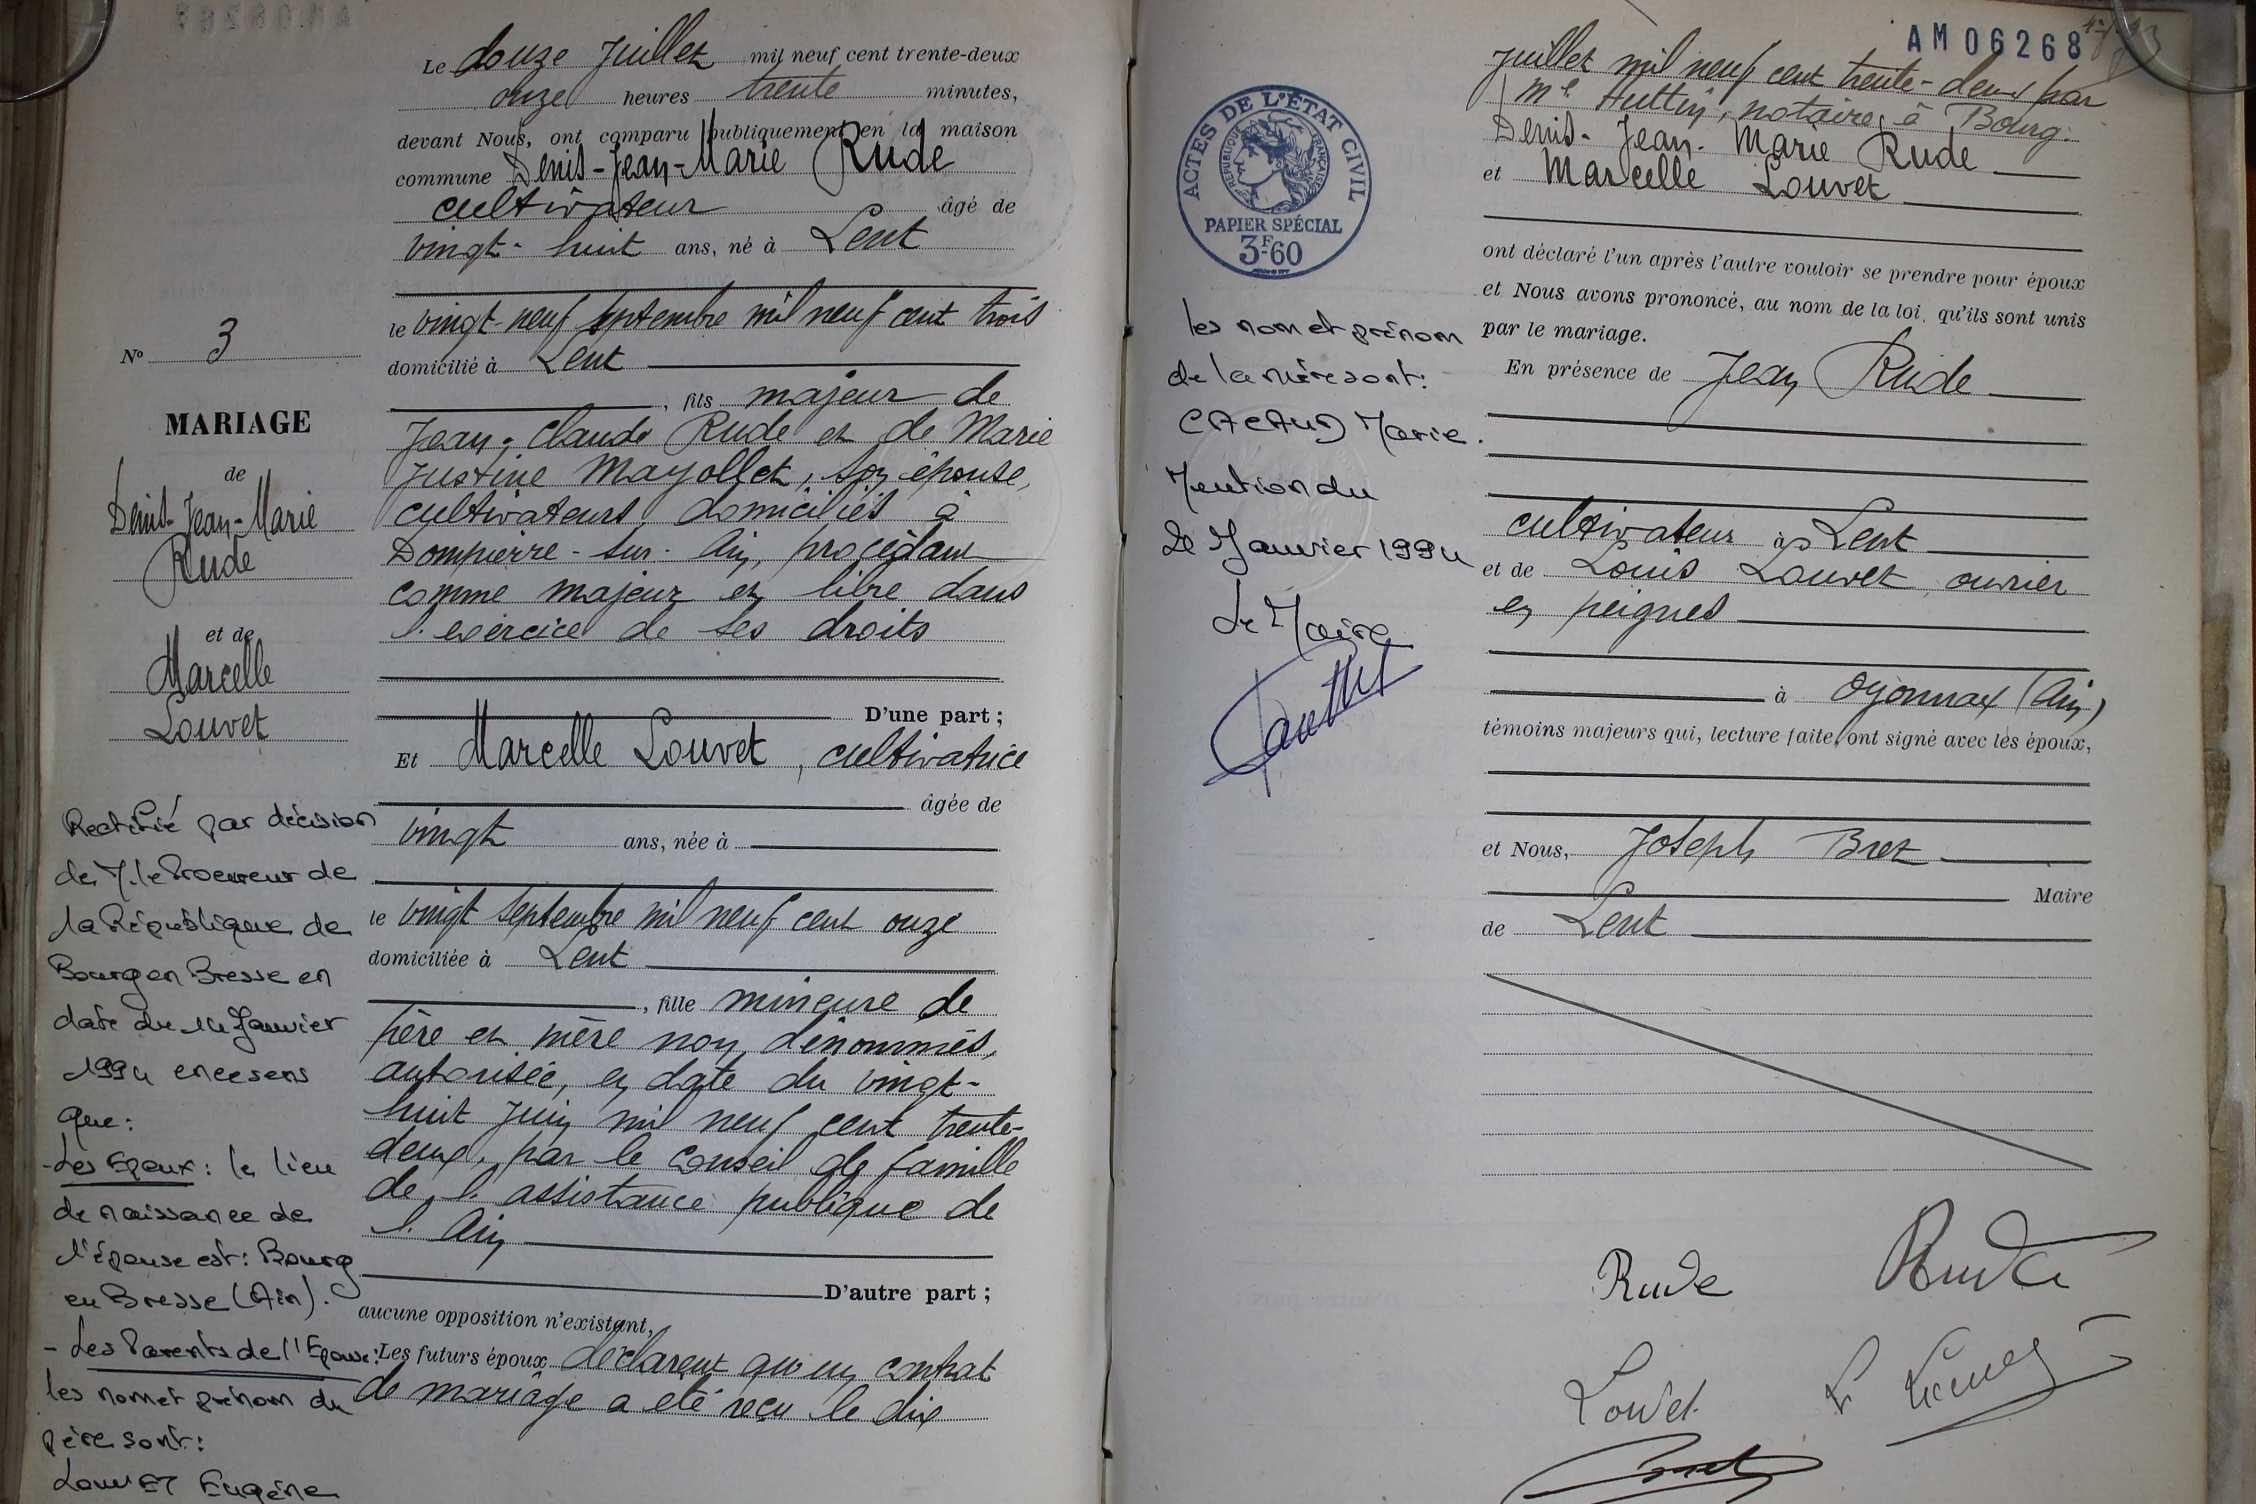 Le douze Juillet mil neuf cent trente-deux
onze heures trente minutes,
devant Nous, ont comparu publiquement en la maison
commune Denis-Jean-Marie Rude
cultivateur âgé de
vingt-huit ans, né à Lent
le vingt-neuf septembre mil neuf cent trois
domicilié à Lent
, fils majeur de
Jean-Claude Rude et de Marie
Justine Mayollet, son épouse,
cultivateurs, domiciliés à
Dompierre-sur-Ain, procédant
comme majeur et libre dans
l'exercice de ses droits
D'une part ;
Et Marcelle Louvet, cultivatrice
âgée de
vingt ans, née à
le vingt septembre mil neuf cent onze
domiciliée à Lent
, fille mineure de
père et mère non dénommés,
autorisée, en date du vingt-
huit juin mil neuf cent trente-
deux, par le conseil de famille
de l'assistance publique de
l'Ain
D'autre part ;
aucune opposition n'existant,
Les futurs époux déclarent qu'un contrat
de mariage a été reçu le dix
N° 3
MARIAGE
de
Denis-Jean-Marie
Rude
et de
Marcelle
Louvet
Rectifié par décision
de M. le Procureur de
la République de
Bourg en Bresse en
date du 14 Janvier
1994 en ce sens
que :
- Les Epoux : le lieu
de naissance de
l'épouse est : Bourg
en Bresse (Ain).
- Les Parents de l'Epouse :
les nom et prénom du
père sont :
LOUVET Eugène
AM06268
juillet mil neuf cent trente-deux par
Me Huttin, notaire à Bourg.
Denis-Jean-Marie Rude
et Marcelle Louvet
ont déclaré l'un après l'autre vouloir se prendre pour époux
et Nous avons prononcé, au nom de la loi, qu'ils sont unis
par le mariage.
En présence de Jean Rude
cultivateur à Lent
et de Louis Louvet, ouvrier
en peignes
à Oyonnax (Ain)
témoins majeurs qui, lecture faite, ont signé avec les époux,
et Nous, Joseph Bret
Maire
de Lent
ACTES DE L'ÉTAT CIVIL
RÉPUBLIQUE FRANÇAISE
PAPIER SPÉCIAL
3F-60
les nom et prénom
de la mère sont :
CACAUD Marie.
Mention du
20 Janvier 1994
Le Maire
Rude
Rude
Louvet
Bret